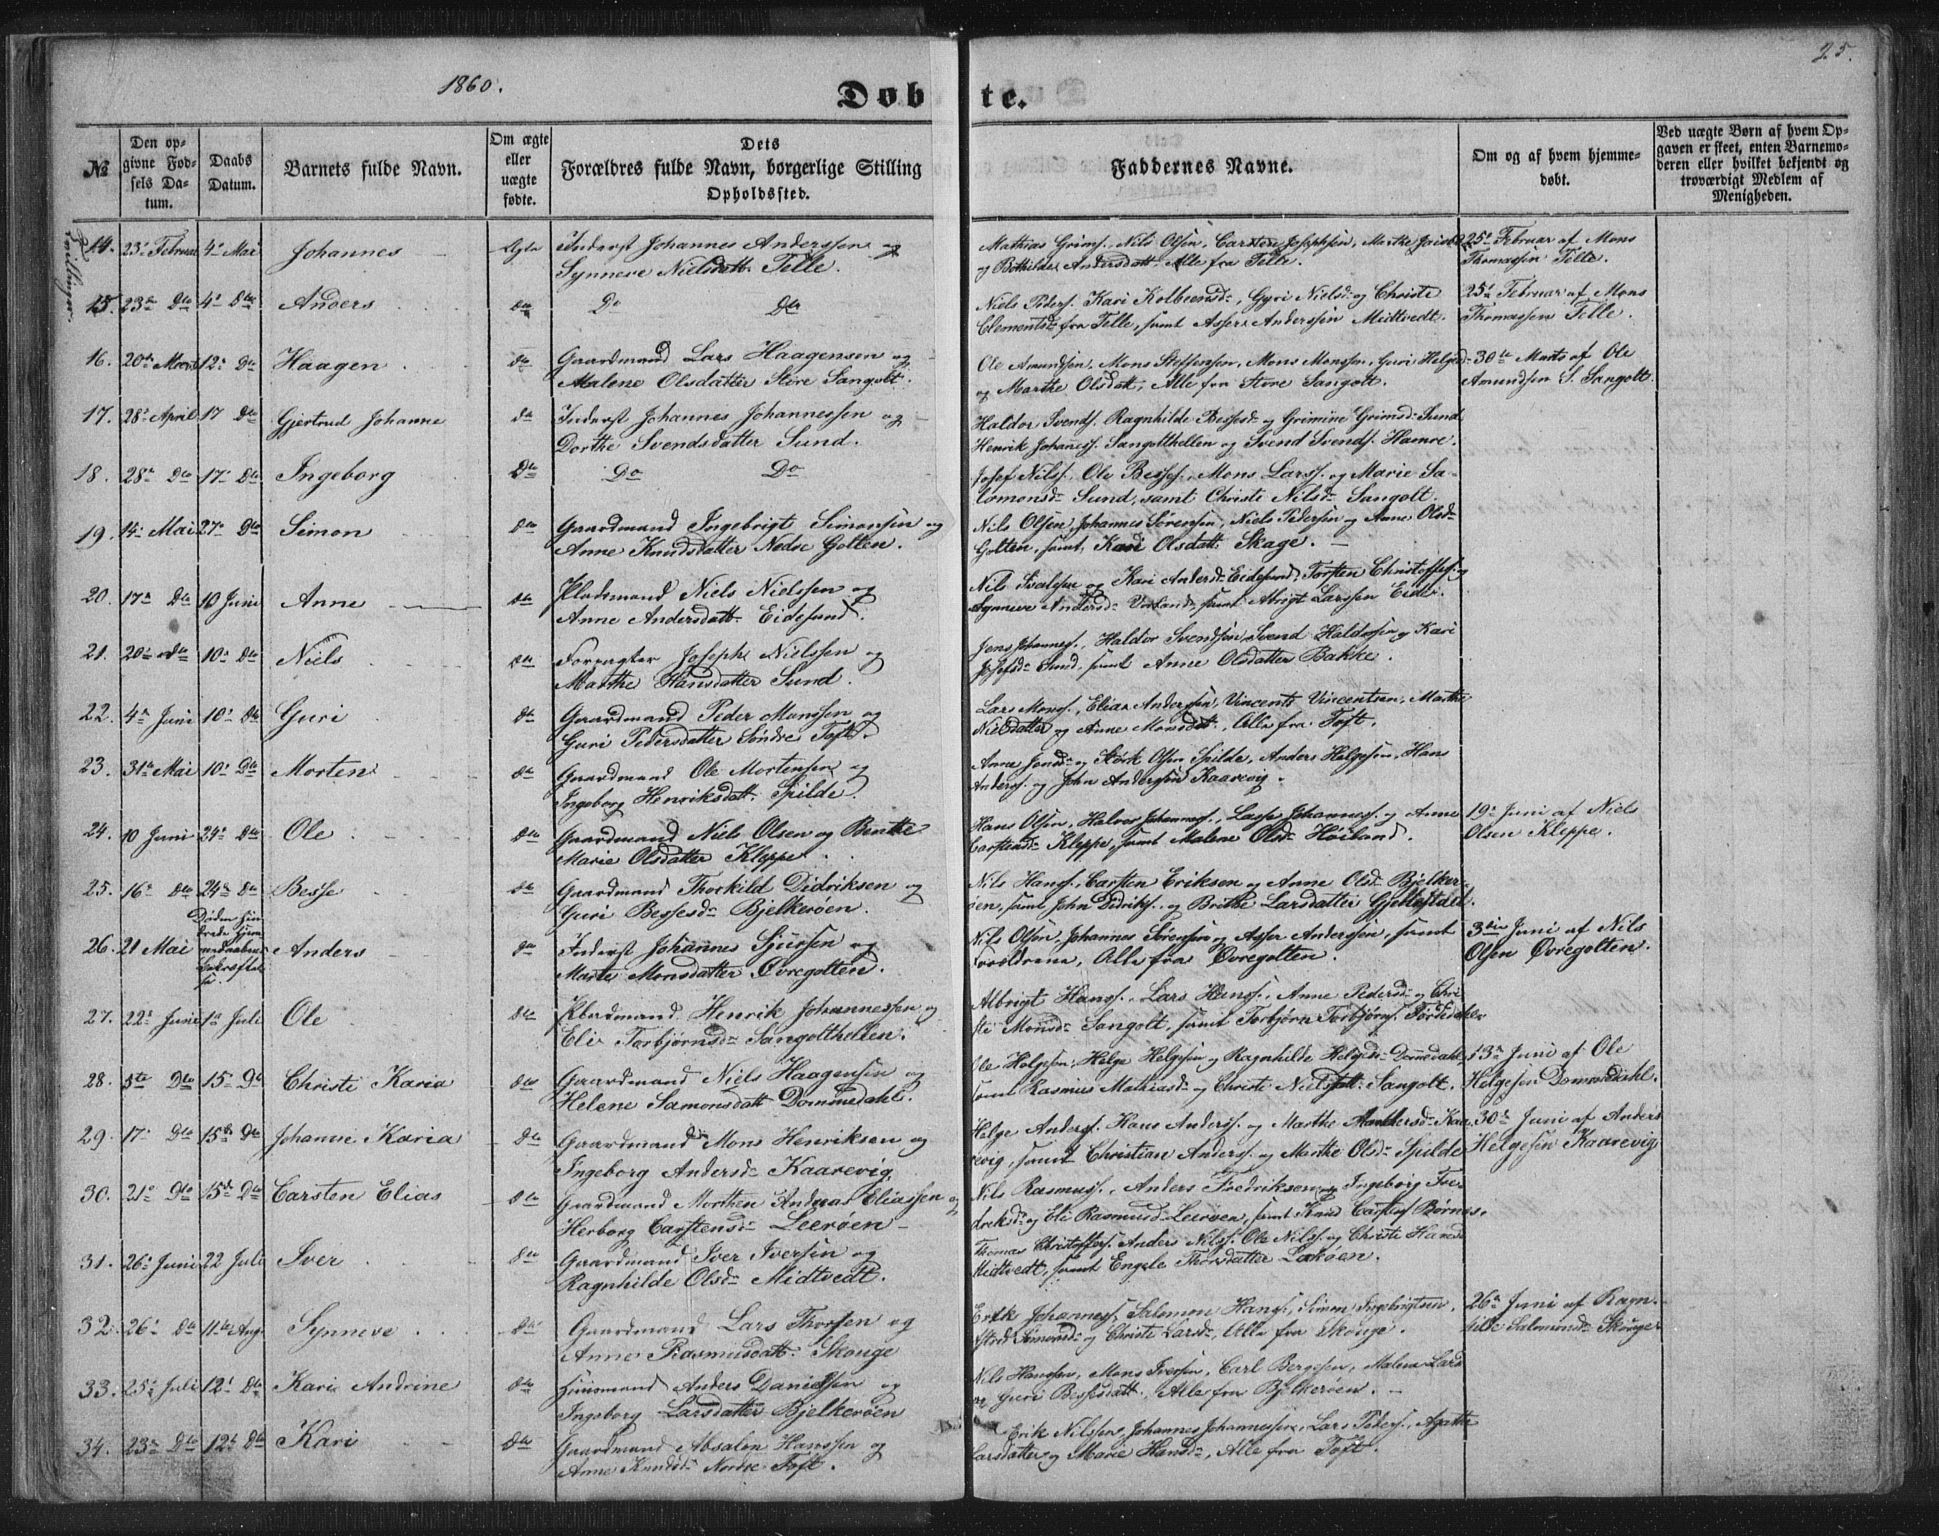 1860.
25.
Døbte.
№
Den opgivne Fødsels Datum.
Daabs Datum.
Barnets fulde Navn.
Om ægte eller uægte fødte.
Dets Forældres fulde Navn, borgerlige Stilling Opholdssted.
Faddernes Navne.
Om og af hvem hjemmedøbt.
Ved uægte Børn af hvem Opgaven er skeet, enten Barnemoderen eller hvilket bekjendt og troværdigt Medlem af Menigheden.
Tvillinger.
14. 23de Februar 4de Mai Johannes Ægte Inderst Johannes Anderssen og
Synneve Nielsdatt. Telle.
Mathias Grims. Nils Olsen, Carsten Josephsen, Marthe Jacobsd.
og Bothilde Andersdatt. Alle fra Telle.
25de Februar af Mons
Thomassen Telle.
15. 23de Dto 4de Dto Anders Dto Do Dto
Niels Peders. Kari Kolbeensd., Gyri Nielsd. og Christi
Clementsd. fra Telle, samt Asser Anderssen Midtvedt.
25de Februar af Mons
Thomassen Telle.
16. 20de Marts 12te Dto Haagen Dto Gaardmand Lars Haagensen og
Malene Olsdatter Store Sangolt.
Ole Amundsen, Mons Steffensen, Mons Monssen, Guri Helgesd.
og Marthe Olsdat., Alle fra Store Sangolt.
30te Marts af Ole
Amundsen S. Sangolt.
17. 28de April 17 Dto Gjertrud Johanne Dto Inderst Johannes Johannessen og
Dorthe Svendsdatter Sund.
Haldor Svends. Ragnhilde Bessesd. og Grimine Grimsd. Sund
Henrik Johaness. Sangolthellen og Svend Svends. Hamre.
18. 28de Dto 17de Dto Ingeborg Dto Do Do
Josef Nils., Ole Besses., Mons Larss. og Marie Sa-
lomonsd. Sund, samt Christi Nilsd. Sangolt.
19. 14de Mai 27de Dto Simon Dto Gaardmand Ingebrigt Simonsen og
Anne Knudsdatter Nedre Golten.
Nils Olsen, Johannes Sørensen, Niels Pedersen og Anne Olsd.
Golten, samt Kari Olsdatt. Skage.
20. 17de Dto 10 Juni Anne Dto Pladsmand Niels Nielssen og
Anne Andersdatt. Eidesund.
Nils Ivalsen og Kari Andersd. Eidesund, Torsten Christoffers. og
Synneve Andersd. Vorland, samt Abrigt Larssen Eide.
21. 20de Dto 10de Dto Niels Dto Forpagter Joseph Nielssen og
Marthe Hansdatter Sund.
Jens Johannes., Haldor Svendsen, Svend Haldorsen og Kari
Josefsd. Sund, samt Anne Olsdatter Bakke.
22. 4de Juni 10de Dto Guri Dto Gaardmand Peder Monssen og
Guri Pedersdatter Søndre Toft.
Lars Mons., Elias Anderssen, Vincents Vincentsen, Marthe
Nielsdatter og Anne Monsdat., Alle fra Toft.
23. 31te Mai 10de Dto Morten Dto Gaardmand Ole Mortensen og
Ingeborg Henriksdatt. Spilde.
Anne Jonsd. og Størk Olsen Spilde, Anders Helgesen, Hans
Anders. og John Anderssen Kaarevig.
24. 10 Juni 24de Dto Ole Dto Gaardmand Niels Olsen og Berthe
Marie Olsdatter Kleppe.
Hans Olsen, Halvor Johannes., Lasse Johanness. og Anne
Carstensd. Kleppe, samt Malene Olsd. Høiland.
19de Juni af Niels
Olsen Kleppe.
25. 16de Dto 24de Dto Besse Dto Gaardmand Thorkild Didriksen og
Guri Bessesd. Bjelkerøen.
Nils Hans., Carsten Eriksen og Anne Olsd. Bjelker-
øen, samt John Didriks. og Brithe Larsdatter Gjelefald.
26. 21 Mai
Døden hin-
drede Hjem-
medaabens
Bekræftel-
se.
Anders Dto Inderst Johannes Sjursen og
Marte Monsdatter Øvregolten.
Nils Olsen, Johannes Sørensen og Asser Anderssen, samt
Forældrene, Alle fra Øvregolten.
3die Juni af Nils
Olsen Øvregolten.
27. 22de Juni 1ste Juli Ole Dto Henrik Johannessen og
Eli Torbjørnsd. Sangolthellen.
Albrigt Hans., Lars Hans., Anne Pedersd. og Chri-
sti Monsd. Sangolt, samt Torbjørn Torbjørns.
28. 8te Dto 15de Dto Christi Karia Dto Gaardmand Niels Haagensen og
Helene Samonsdatt. Dommedahl.
Ole Helgesen, Helge Helgesen og Ragnhilde Helgesd. Dommedahl,
samt Rasmus Mathiasd. og Christi Nielsdatt. Sangolt.
13de Juni af Ole
Helgesen Dommedahl.
29. 17de Dto 15de Dto Johanne Karia Dto Gaardmand Mons Henriksen og
Ingeborg Andersd. Kaarevig.
Helge Anders. Hans Anders. og Marthe Andersd. Kaa-
revig, samt Christian Anders. og Marthe Olsd. Spilde
30te Juni af Anders
Helgesen Kaarevig.
30. 21de Dto 15de Dto Carsten Elias Dto Gaardmand Morthen Andreas Eliassen og
Herborg Carstensd. Leerøen
Nils Rasmus., Anders Fredriksen og Ingeborg Fre-
driksd. og Eli Rasmusd. Leerøen, samt Knud Carstens. Børnes.
31. 26de Juni 22 Juli Iver Dto Gaardmand Iver Iversen og
Ragnhilde Olsd. Midtvedt.
Thomas Christoffers. Anders Nilss. Ole Nilss. og Christi Hansd.
Midtvedt, samt Engele Thorsdatter Lokøen.
32. 26de Dto 11te Aug. Synneve Dto Gaardmand Lars Thorsen og
Anne Rasmusdatt. Skouge
Erik Johannes., Salomon Hans., Simon Ingebrigtsen,
Astrid Simonsd. og Christi Larsd., Alle fra Skouge.
26de Juni af Ragn-
hilde Salomonsd. Skouge
33. 25de Juli 12te Dto Kari Andrine Dto Huusmand Anders Danielssen og
Ingeborg Larsdatter Bjelkerøen
Nils Hanssen, Mons Iversen, Carl Bergesen, Malene Larsd.
og Guri Bessesdatt. Alle fra Bjelkerøen.
34. 23de Dto 12te Dto Kari Dto Gaardmand Absalon Hanssen og
Anne Knudsd. Nordre Toft.
Erik Nilssen, Johannes Johannessen, Lars Peders., Agathe
Larsdatter og Marie Hansd., Alle fra Toft.